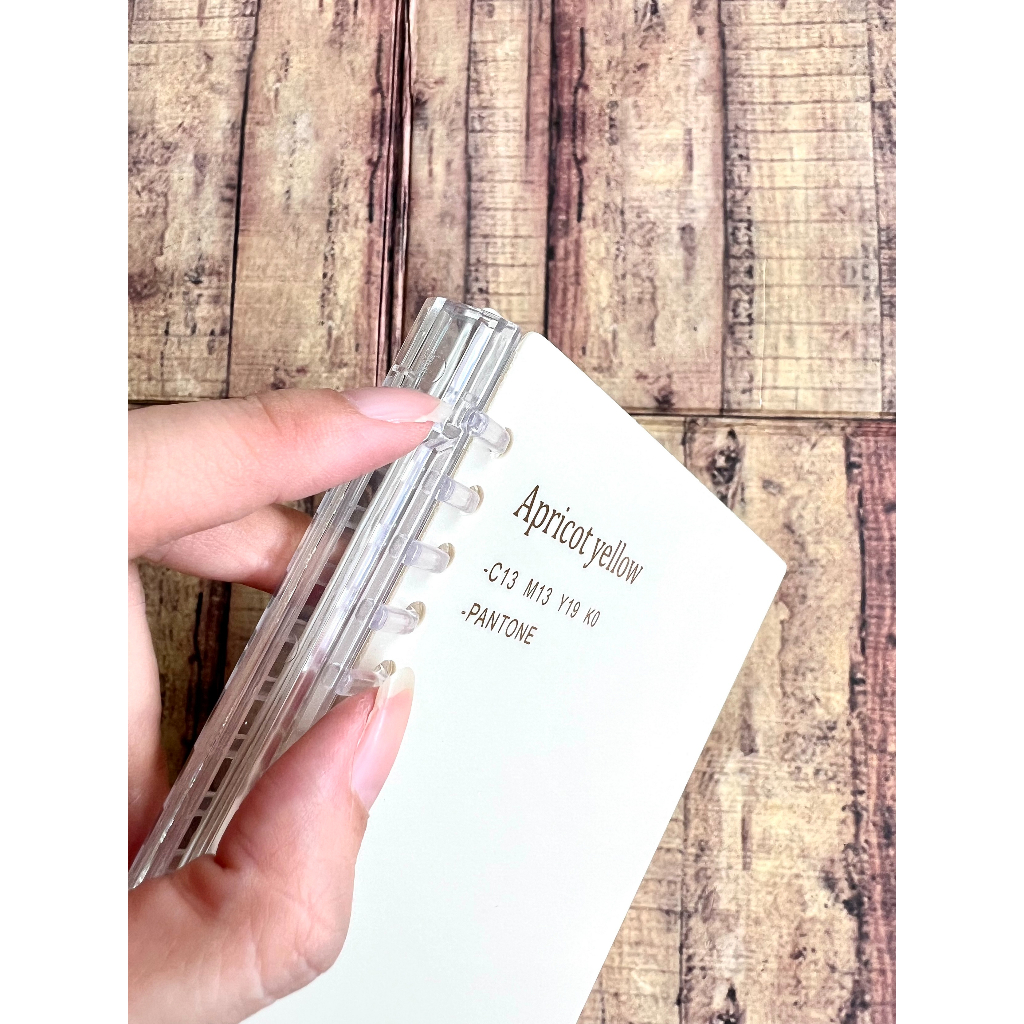 Apricot yellow
-C13 M13 Y19 K0
-PANTONE